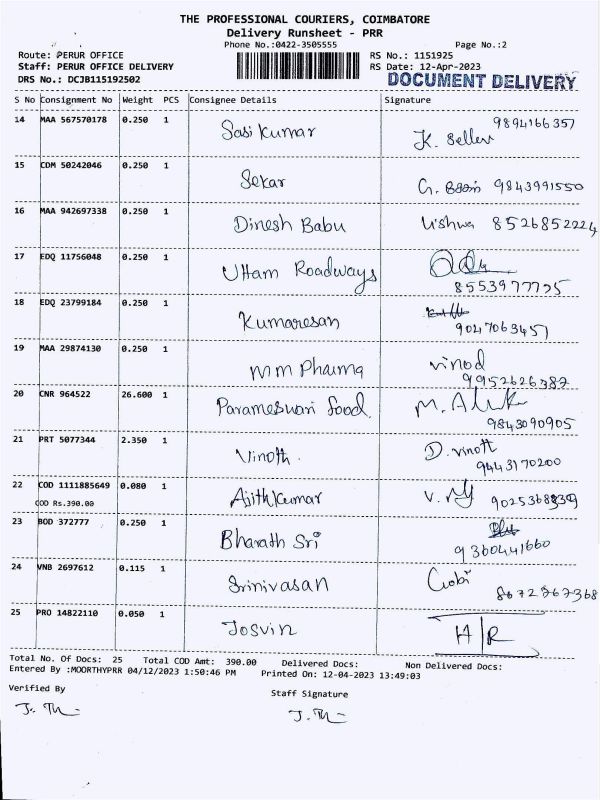 THE PROFESSIONAL COURIERS, COIMBATORE
Delivery Runsheet - PRR
Phone No.:0422-3505555 Page No.:2
Route: PERUR OFFICE RS No.: 1151925
Staff: PERUR OFFICE DELIVERY RS Date: 12-Apr-2023
DRS No.: DCJB115192502 DOCUMENT DELIVERY
S No Consignment No Weight PCS Consignee Details Signature
14 MAA 567570178 0.250 1 Sasi kumar 9894166357
K.
15 CDM 50242046 0.250 1 Sekar G. 9843991550
16 MAA 942697338 0.250 1 Dinesh Babu Vishwa 8526852224
17 EDQ 11756048 0.250 1 Uttam Roadways
8553977725
18 EDQ 23799184 0.250 1 Kumaresan
9047063451
19 MAA 29874130 0.250 1 MM Pharma vinod
9952626387
20 CNR 964522 26.600 1 Parameswari food. M.
9843090905
21 PRT 5077344 2.350 1 Vinoth. D. vinoth
9443170200
22 COD 1111885649 0.080 1 Ajith kumar V. 9025368339
COD Rs.390.00
23 BOD 372777 0.250 1 Bharath Sri
9360441660
24 VNB 2697612 0.115 1 Srinivasan Gobi
8672767368
25 PRO 14822110 0.050 1 Josvin H/R
Total No. Of Docs: 25 Total COD Amt: 390.00 Delivered Docs: Non Delivered Docs:
Entered By :MOORTHYPRR 04/12/2023 1:50:46 PM Printed On: 12-04-2023 13:49:03
Verified By Staff Signature